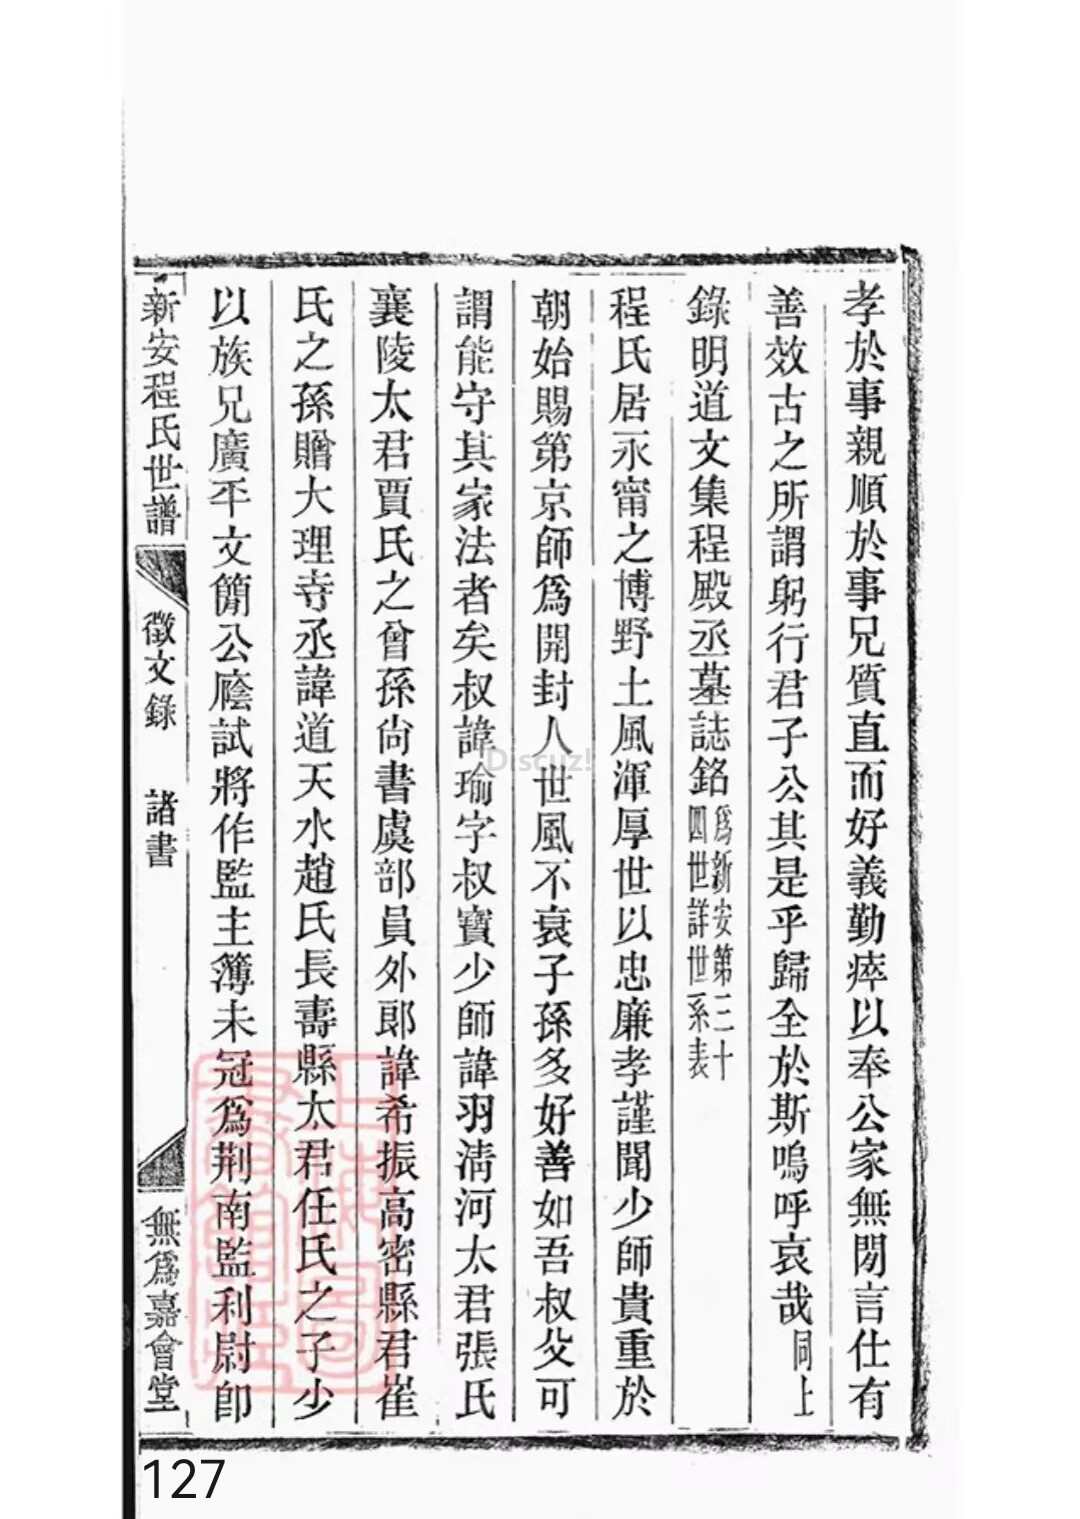 孝於事親順於事兄質直而好義勤瘁以奉公家無閒言仕有
善效古之所謂躬行君子公其是乎歸全於斯嗚呼哀哉同上
錄明道文集程殿丞墓誌銘為新安第三十四世詳世系表
程氏居永甯之博野土風渾厚世以忠廉孝謹聞少師貴重於
朝始賜第京師爲開封人世風不衰子孫多好善如吾叔父可
謂能守其家法者矣叔諱瑜字叔寶少師諱羽淸河太君張氏
襄陵太君賈氏之曾孫尙書虞部員外郎諱希振高密縣君崔
氏之孫贈大理寺丞諱道天水趙氏長壽縣太君任氏之子少
以族兄廣平文簡公廕試將作監主簿未冠爲荆南監利尉卽
新安程氏世譜 徵文錄 諸書 無爲嘉會堂
Discuz!
127